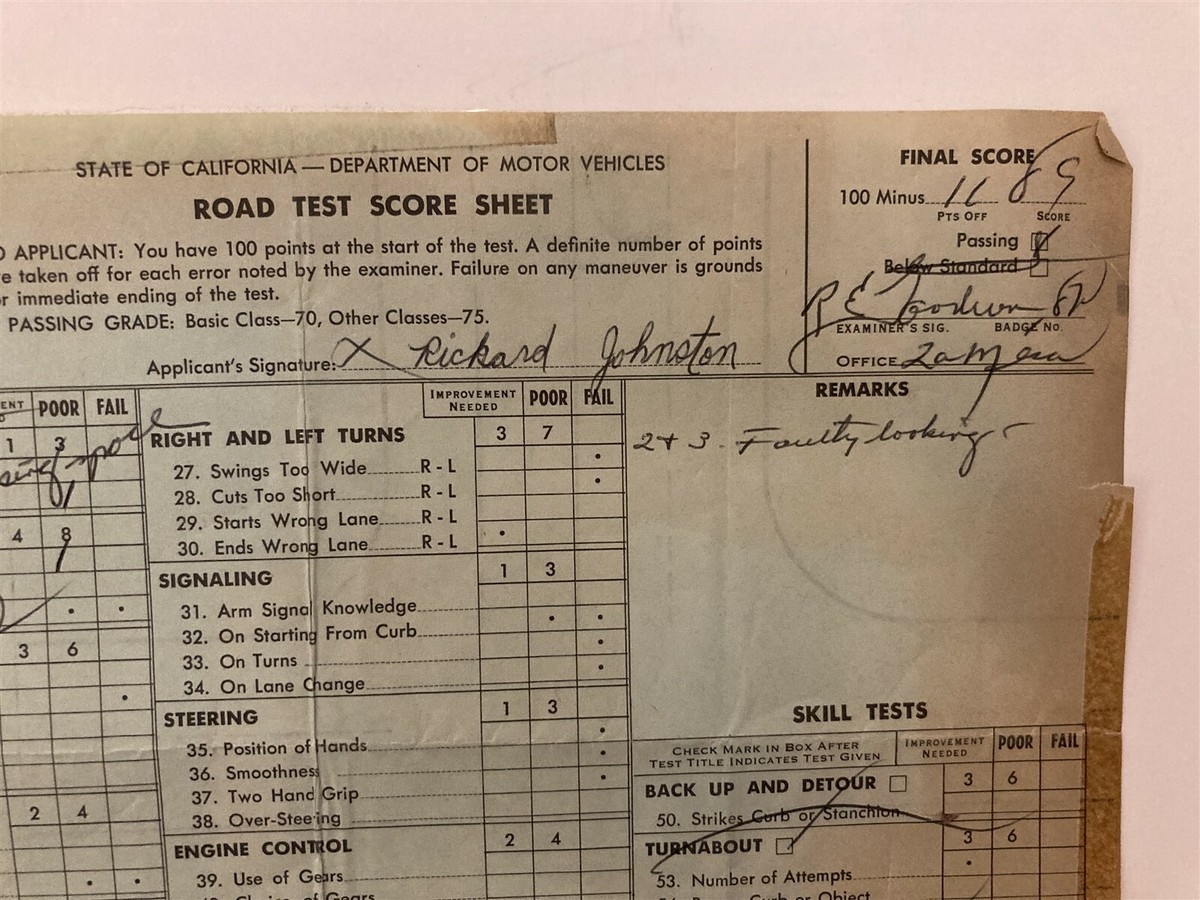 STATE OF CALIFORNIA — DEPARTMENT OF MOTOR VEHICLES
ROAD TEST SCORE SHEET
O APPLICANT: You have 100 points at the start of the test. A definite number of points
e taken off for each error noted by the examiner. Failure on any maneuver is grounds
r immediate ending of the test.
PASSING GRADE: Basic Class—70, Other Classes—75.
Applicant's Signature: X Rickard Johnston
FINAL SCORE
100 Minus 11 89
PTS OFF SCORE
Passing
Below Standard
R E Goodwin
EXAMINER'S SIG. BADGE No.
OFFICE La Mesa
ENT POOR FAIL
1 3
4 8
3 6
2 4
IMPROVEMENT NEEDED POOR FAIL
RIGHT AND LEFT TURNS 3 7
27. Swings Too Wide R - L
28. Cuts Too Short R - L
29. Starts Wrong Lane R - L
30. Ends Wrong Lane R - L
SIGNALING 1 3
31. Arm Signal Knowledge
32. On Starting From Curb
33. On Turns
34. On Lane Change
STEERING 1 3
35. Position of Hands
36. Smoothness
37. Two Hand Grip
38. Over-Steering
ENGINE CONTROL 2 4
39. Use of Gears
REMARKS
2 + 3. Faulty looking
SKILL TESTS
CHECK MARK IN BOX AFTER
TEST TITLE INDICATES TEST GIVEN
IMPROVEMENT NEEDED POOR FAIL
BACK UP AND DETOUR 3 6
50. Strikes Curb or Stanchion
TURNABOUT 3 6
53. Number of Attempts